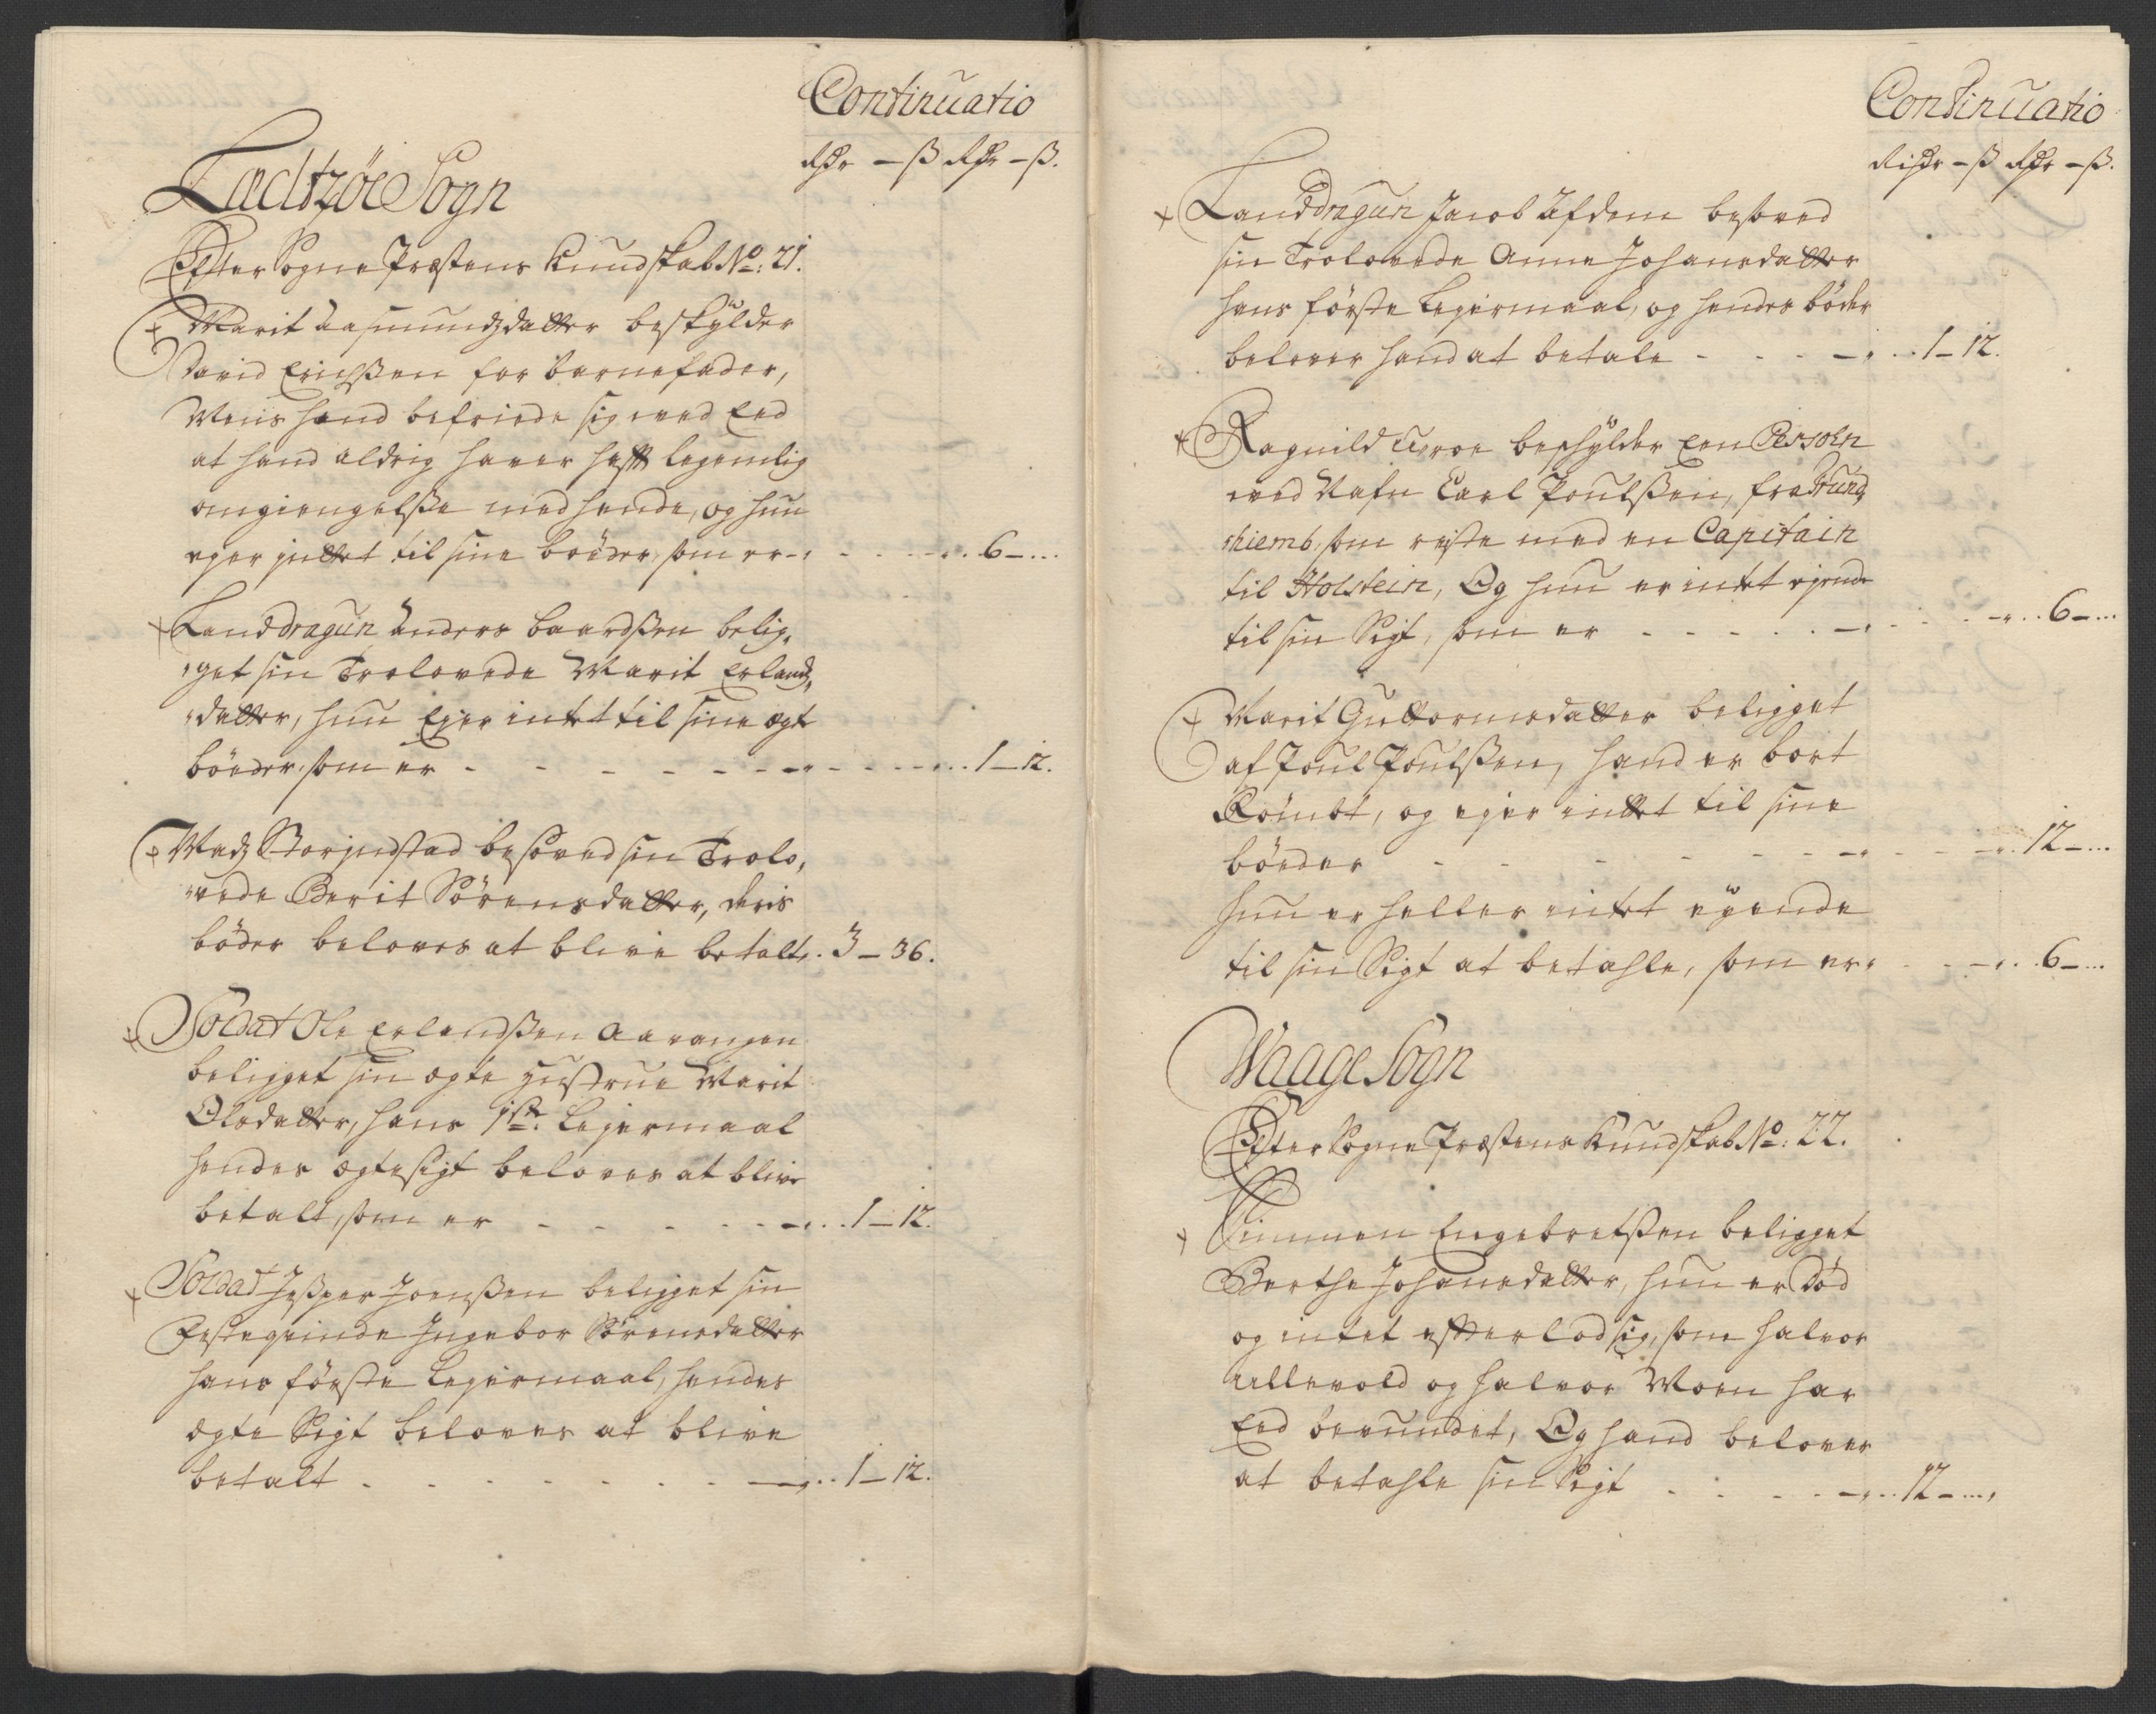 Continuatio
Rdr – ß Rdr – ß.
Ladtzöe Sogn
Efter Sogne Præstens Kundskab No: 21.
Marit Aasmundzdatter beskÿlder
David Erichßen for barnefader,
Mens hand befriede sig med Eed
at hand aldrig haver hafft legemlig
omgiengelße med hende, og hun
ejer inttet til sine bøder, som er - 6 - ...
Landdragun Anders Baardßen belig,
get sin Trolovede Marit Erlandz,
datter, hun Ejer intet til sine ægt
bøeder, som er - 1 - 12.
Madz Storjordstad besoved sin Trolo,
vede Berit Sörensdatter, deris
bøder beloves at blive betalt, . 3 - 36.
Soldat Ole Erlandßen Aavangen
beligget sin ægte hustrue Marit
Olsdatter, hans 1ste. Lejermaal
hendes ægtesigt beloves at blive
betalt, som er - 1 - 12.
Soldat Jesper Joenßen beligget sin
Festeqvinde Ingebor Sörensdatter
hans förste Lejermaal, hendes
ægte Sigt beloves at blive
betalt - 1 - 12.
Continuatio
Rixdr – ß Rdr – ß.
Landdragun Jacob Ifdem besoved
sin Trolovede Anne Johansdatter
hans förste Lejermaal, og hendes bøder
belover hand at betale - 1 - 12.
Ragnild beskÿlder Een Persohn
ved Nafn Carl Poulßen, fra Trund,
hiemb, som reiste med en Capitain
til Holstein, Og hun er intet ejende
til sin Sigt, som er - 6 - ...
Marit Guttormsdatter beligget
af Poul Poulßen, hand er bort
Römbt, og ejer inttet til sine
bøeder - 12 - ...
hun er heller intet eÿende
til sin Sigt at betahle, som er - 6 - ...
Waage Sogn
Efter Sogne Præstens Kundskab No: 22.
Simmen Engebretßen beligget
Berthe Johansdatter, hun er Död
og intet efterlod sig, som Halvor
Ullevold og Halvor Moen har
Eed bevundet, Og hand belover
at betahle sin Sigt - 12 - ...